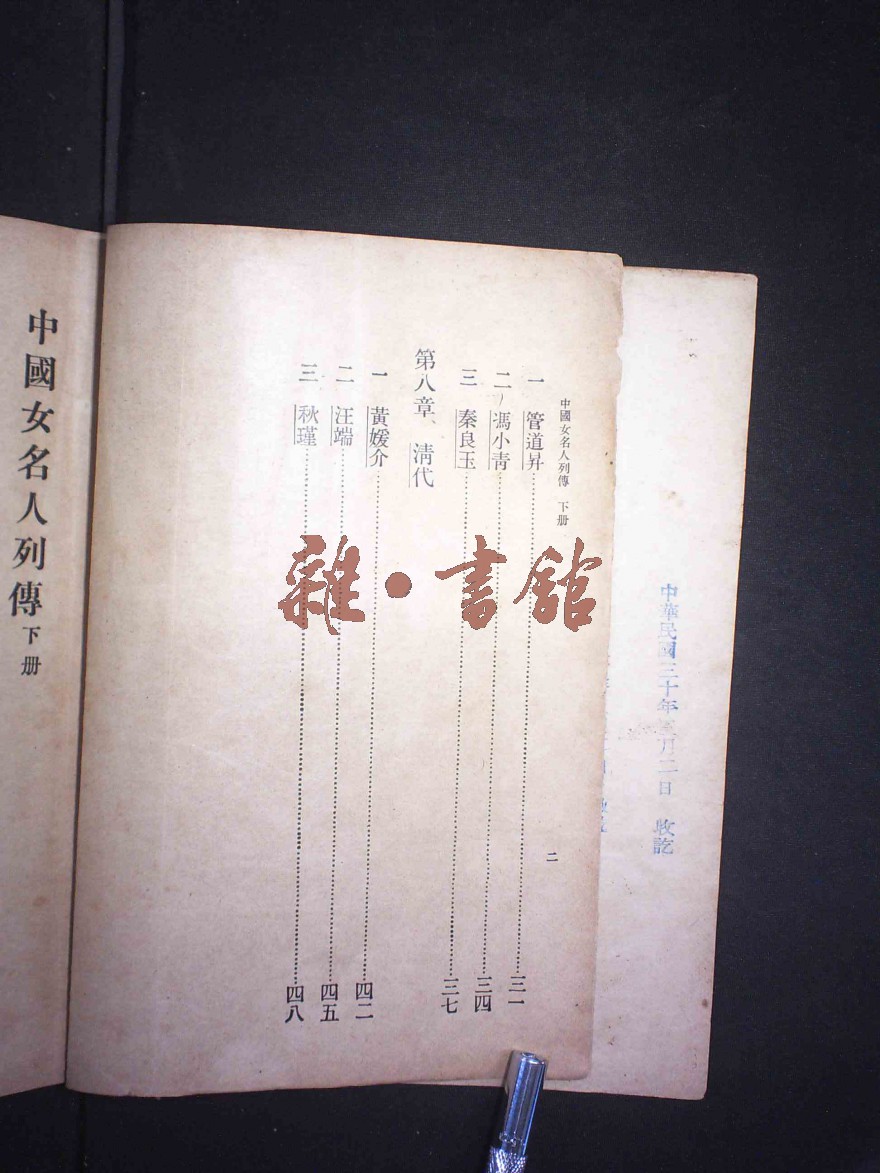 中華民國三十年 月二日 收訖
中國女名人列傳 下册
二
一 管道昇 三一
二 馮小青 三四
三 秦良玉 三七
第八章、清代
一 黃媛介 四二
二 汪端 四五
三 秋瑾 四八
雜·書館
中國女名人列傳 下册